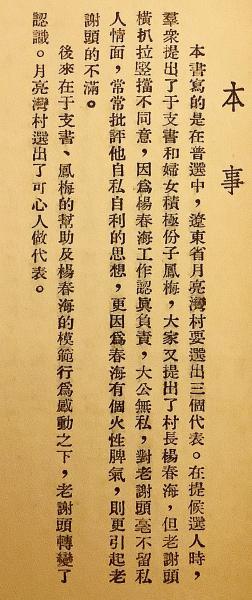 本事
本書寫的是在普選中，遼東省月亮灣村要選出三個代表。在提候選人時，
羣衆提出了于支書和婦女積極份子鳳梅，大家又提出了村長楊春海，但老謝頭
橫扒拉竪擋不同意，因爲楊春海工作認眞負責，大公無私，對老謝頭毫不留私
人情面，常常批評他自私自利的思想，更因爲春海有個火性脾氣，則更引起老
謝頭的不滿。
後來在于支書、鳳梅的幫助及楊春海的模範行爲感動之下，老謝頭轉變了
認識。月亮灣村選出了可心人做代表。